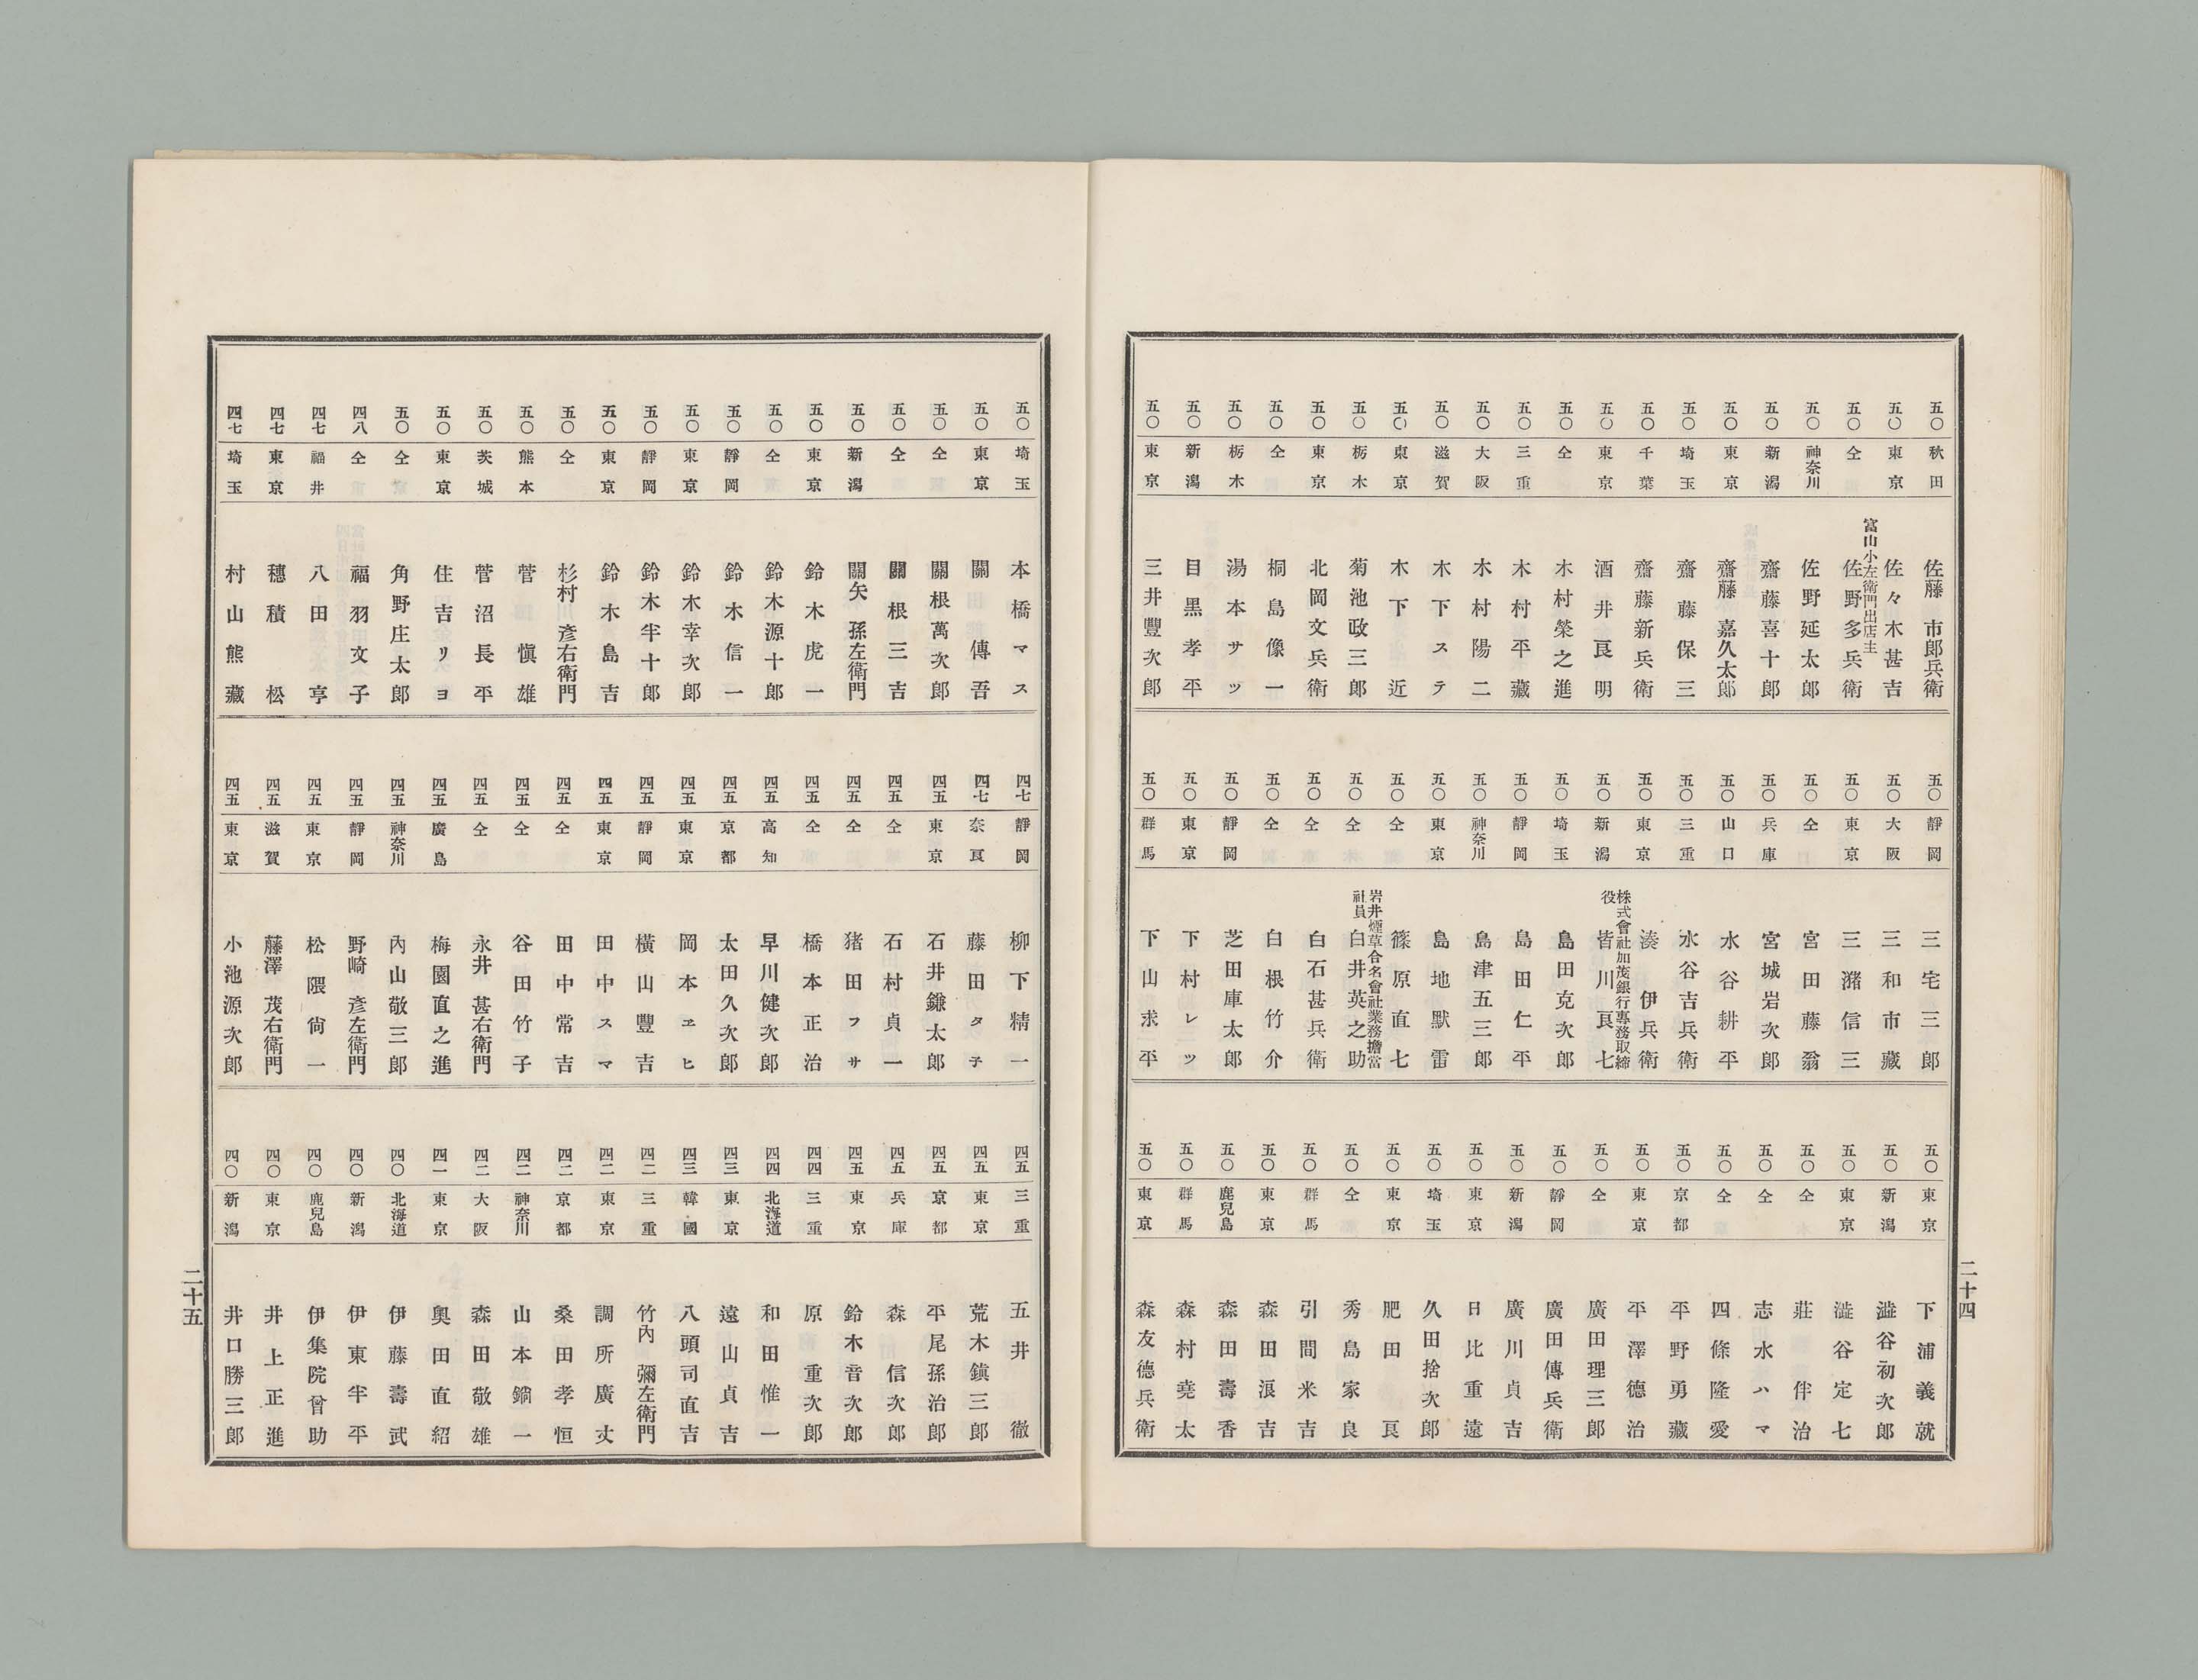 五〇 秋田 佐藤市郎兵衛
五〇 東京 佐々木甚吉
五〇 仝 富山小左衛門出店主 佐野多兵衛
五〇 神奈川 佐野延太郎
五〇 新潟 齋藤喜十郎
五〇 東京 齋藤嘉久太郎
五〇 埼玉 齋藤保三
五〇 千葉 齋藤新兵衛
五〇 東京 酒井良明
五〇 仝 木村榮之進
五〇 三重 木村平藏
五〇 大阪 木村陽二
五〇 滋賀 木下ステ
五〇 東京 木下近
五〇 栃木 菊池政三郎
五〇 東京 北岡文兵衛
五〇 仝 桐島像一
五〇 栃木 湯本サツ
五〇 新潟 目黒孝平
五〇 東京 三井豐次郎
五〇 靜岡 三宅三郎
五〇 大阪 三和市藏
五〇 東京 三潴信三
五〇 仝 宮田藤翁
五〇 兵庫 宮城岩次郎
五〇 山口 水谷耕平
五〇 三重 水谷吉兵衛
五〇 東京 湊伊兵衛
五〇 新潟 株式會社加茂銀行專務取締役 皆川良七
五〇 埼玉 島田克次郎
五〇 靜岡 島田仁平
五〇 神奈川 島津五三郎
五〇 東京 島地默雷
五〇 仝 篠原直七
五〇 仝 岩井煙草合名會社業務擔當社員 白井英之助
五〇 仝 白石甚兵衛
五〇 仝 白根竹介
五〇 靜岡 芝田庫太郎
五〇 東京 下村レニツ
五〇 群馬 下山求平
五〇 東京 下浦義就
五〇 新潟 澁谷初次郎
五〇 東京 澁谷定七
五〇 仝 莊伴治
五〇 仝 志水ハマ
五〇 仝 四條隆愛
五〇 京都 平野勇藏
五〇 東京 平澤德治
五〇 仝 廣田理三郎
五〇 靜岡 廣田傳兵衛
五〇 新潟 廣川貞吉
五〇 東京 日比重遠
五〇 埼玉 久田捨次郎
五〇 東京 肥田良
五〇 仝 秀島家良
五〇 群馬 引間米吉
五〇 東京 森田浪吉
五〇 鹿兒島 森田壽香
五〇 群馬 森村堯太
五〇 東京 森友德兵衛
二十四
五〇 埼玉 本橋マス
五〇 東京 關傳吾
五〇 仝 關根萬次郎
五〇 仝 關根三吉
五〇 新潟 關矢孫左衛門
五〇 東京 鈴木虎一
五〇 仝 鈴木源十郎
五〇 靜岡 鈴木信一
五〇 東京 鈴木幸次郎
五〇 靜岡 鈴木半十郎
五〇 東京 鈴木島吉
五〇 仝 杉村彦右衛門
五〇 熊本 菅愼雄
五〇 茨城 菅沼長平
五〇 東京 住吉リヨ
五〇 仝 角野庄太郎
四八 仝 福羽文子
四七 福井 八田亨
四七 東京 穗積松
四七 埼玉 村山熊藏
四七 靜岡 柳下精一
四七 奈良 藤田タテ
四五 東京 石井鎌太郎
四五 仝 石村貞一
四五 仝 猪田フサ
四五 仝 橋本正治
四五 高知 早川健次郎
四五 京都 太田久次郎
四五 東京 岡本ヱヒ
四五 靜岡 横山豐吉
四五 東京 田中スマ
四五 仝 田中常吉
四五 仝 谷田竹子
四五 仝 永井甚右衛門
四五 廣島 梅園直之進
四五 神奈川 內山敬三郎
四五 靜岡 野崎彦左衛門
四五 東京 松隈尙一
四五 滋賀 藤澤茂右衛門
四五 東京 小池源次郎
四五 三重 五井徹
四五 東京 荒木鎭三郎
四五 京都 平尾孫治郎
四五 兵庫 森信次郎
四五 東京 鈴木音次郎
四四 三重 原重次郎
四四 北海道 和田惟一
四三 東京 遠山貞吉
四三 韓國 八頭司直吉
四二 三重 竹內彌左衛門
四二 東京 調所廣丈
四二 京都 桑田孝恒
四二 神奈川 山本鍗一
四二 大阪 森田敬雄
四一 東京 奥田直紹
四〇 北海道 伊藤壽武
四〇 新潟 伊東半平
四〇 鹿兒島 伊集院曾助
四〇 東京 井上正進
四〇 新潟 井口勝三郎
二十五